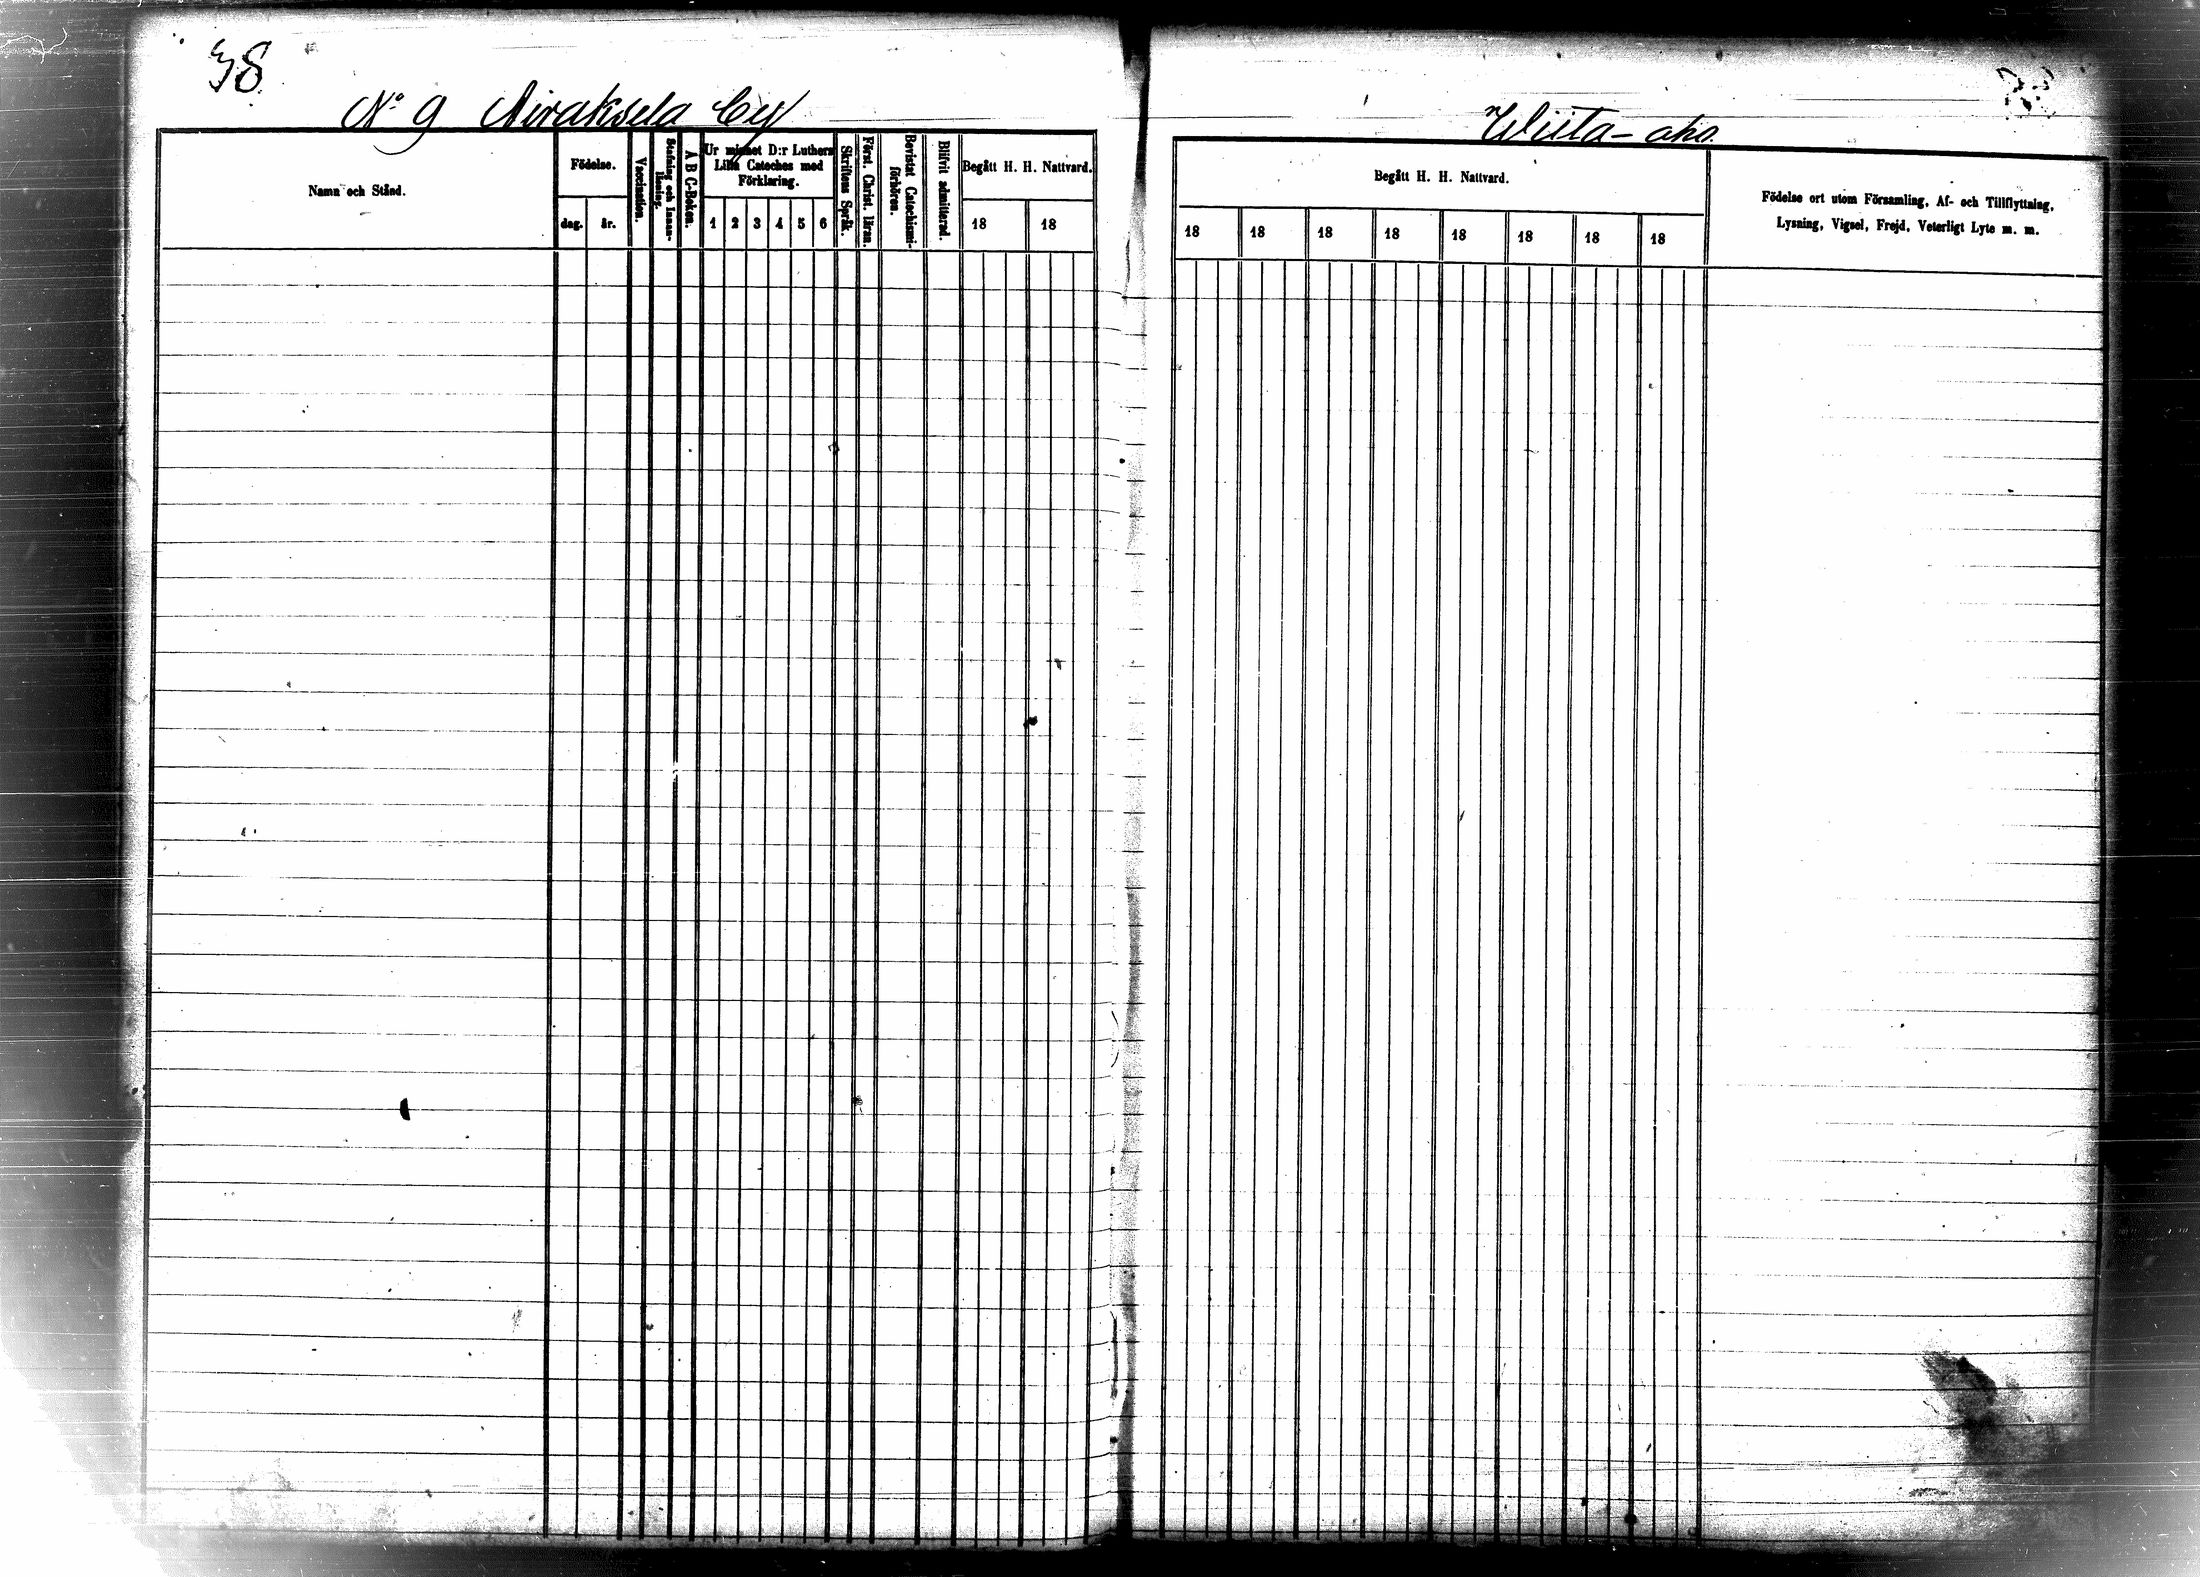 38
No 9 Airaksela by
Wiita-aho.
Namn och Stånd.
Födelse.
dag. år.
Vaccination.
Stafning och Innanläsning.
A B C-Boken.
Ur minnet D:r Luthers
Lilla Cateches med
Förklaring.
1 2 3 4 5 6
Skriftens Språk.
Först. Christ. läran.
Bevistat Catechismi-
förhören.
Blifvit admitterad.
Begått H. H. Nattvard.
18 18
Begått H. H. Nattvard.
18 18 18 18 18 18 18 18
Födelse ort utom Församling, Af- och Tillflyttning,
Lysning, Vigsel, Frejd, Veterligt Lyte m. m.